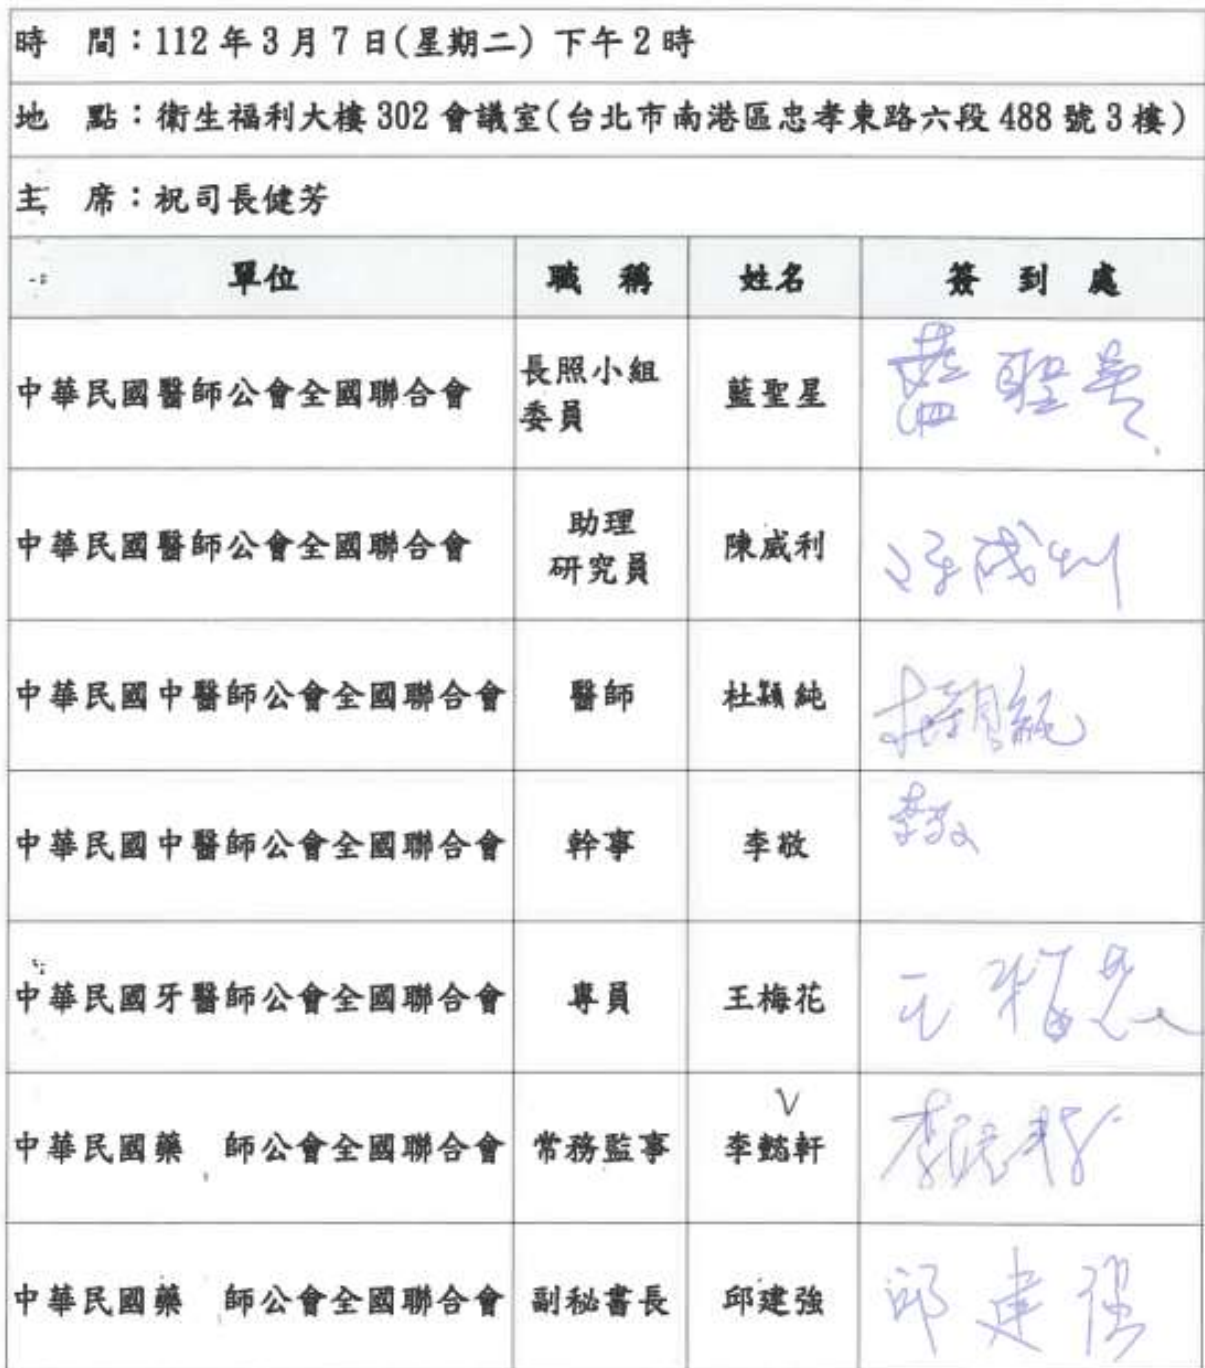 時 間：112年3月7日(星期二) 下午2時
地 點：衛生福利大樓302會議室(台北市南港區忠孝東路六段488號3樓)
主 席：祝司長健芳
單位 職 稱 姓名 簽 到 處
中華民國醫師公會全國聯合會 長照小組 委員 藍聖星 藍聖星
中華民國醫師公會全國聯合會 助理 研究員 陳威利 陳威利
中華民國中醫師公會全國聯合會 醫師 杜穎純 杜穎純
中華民國中醫師公會全國聯合會 幹事 李敬 李敬
中華民國牙醫師公會全國聯合會 專員 王梅花 王梅花
V
中華民國藥 師公會全國聯合會 常務監事 李懿軒 李懿軒
中華民國藥 師公會全國聯合會 副秘書長 邱建強 邱建強